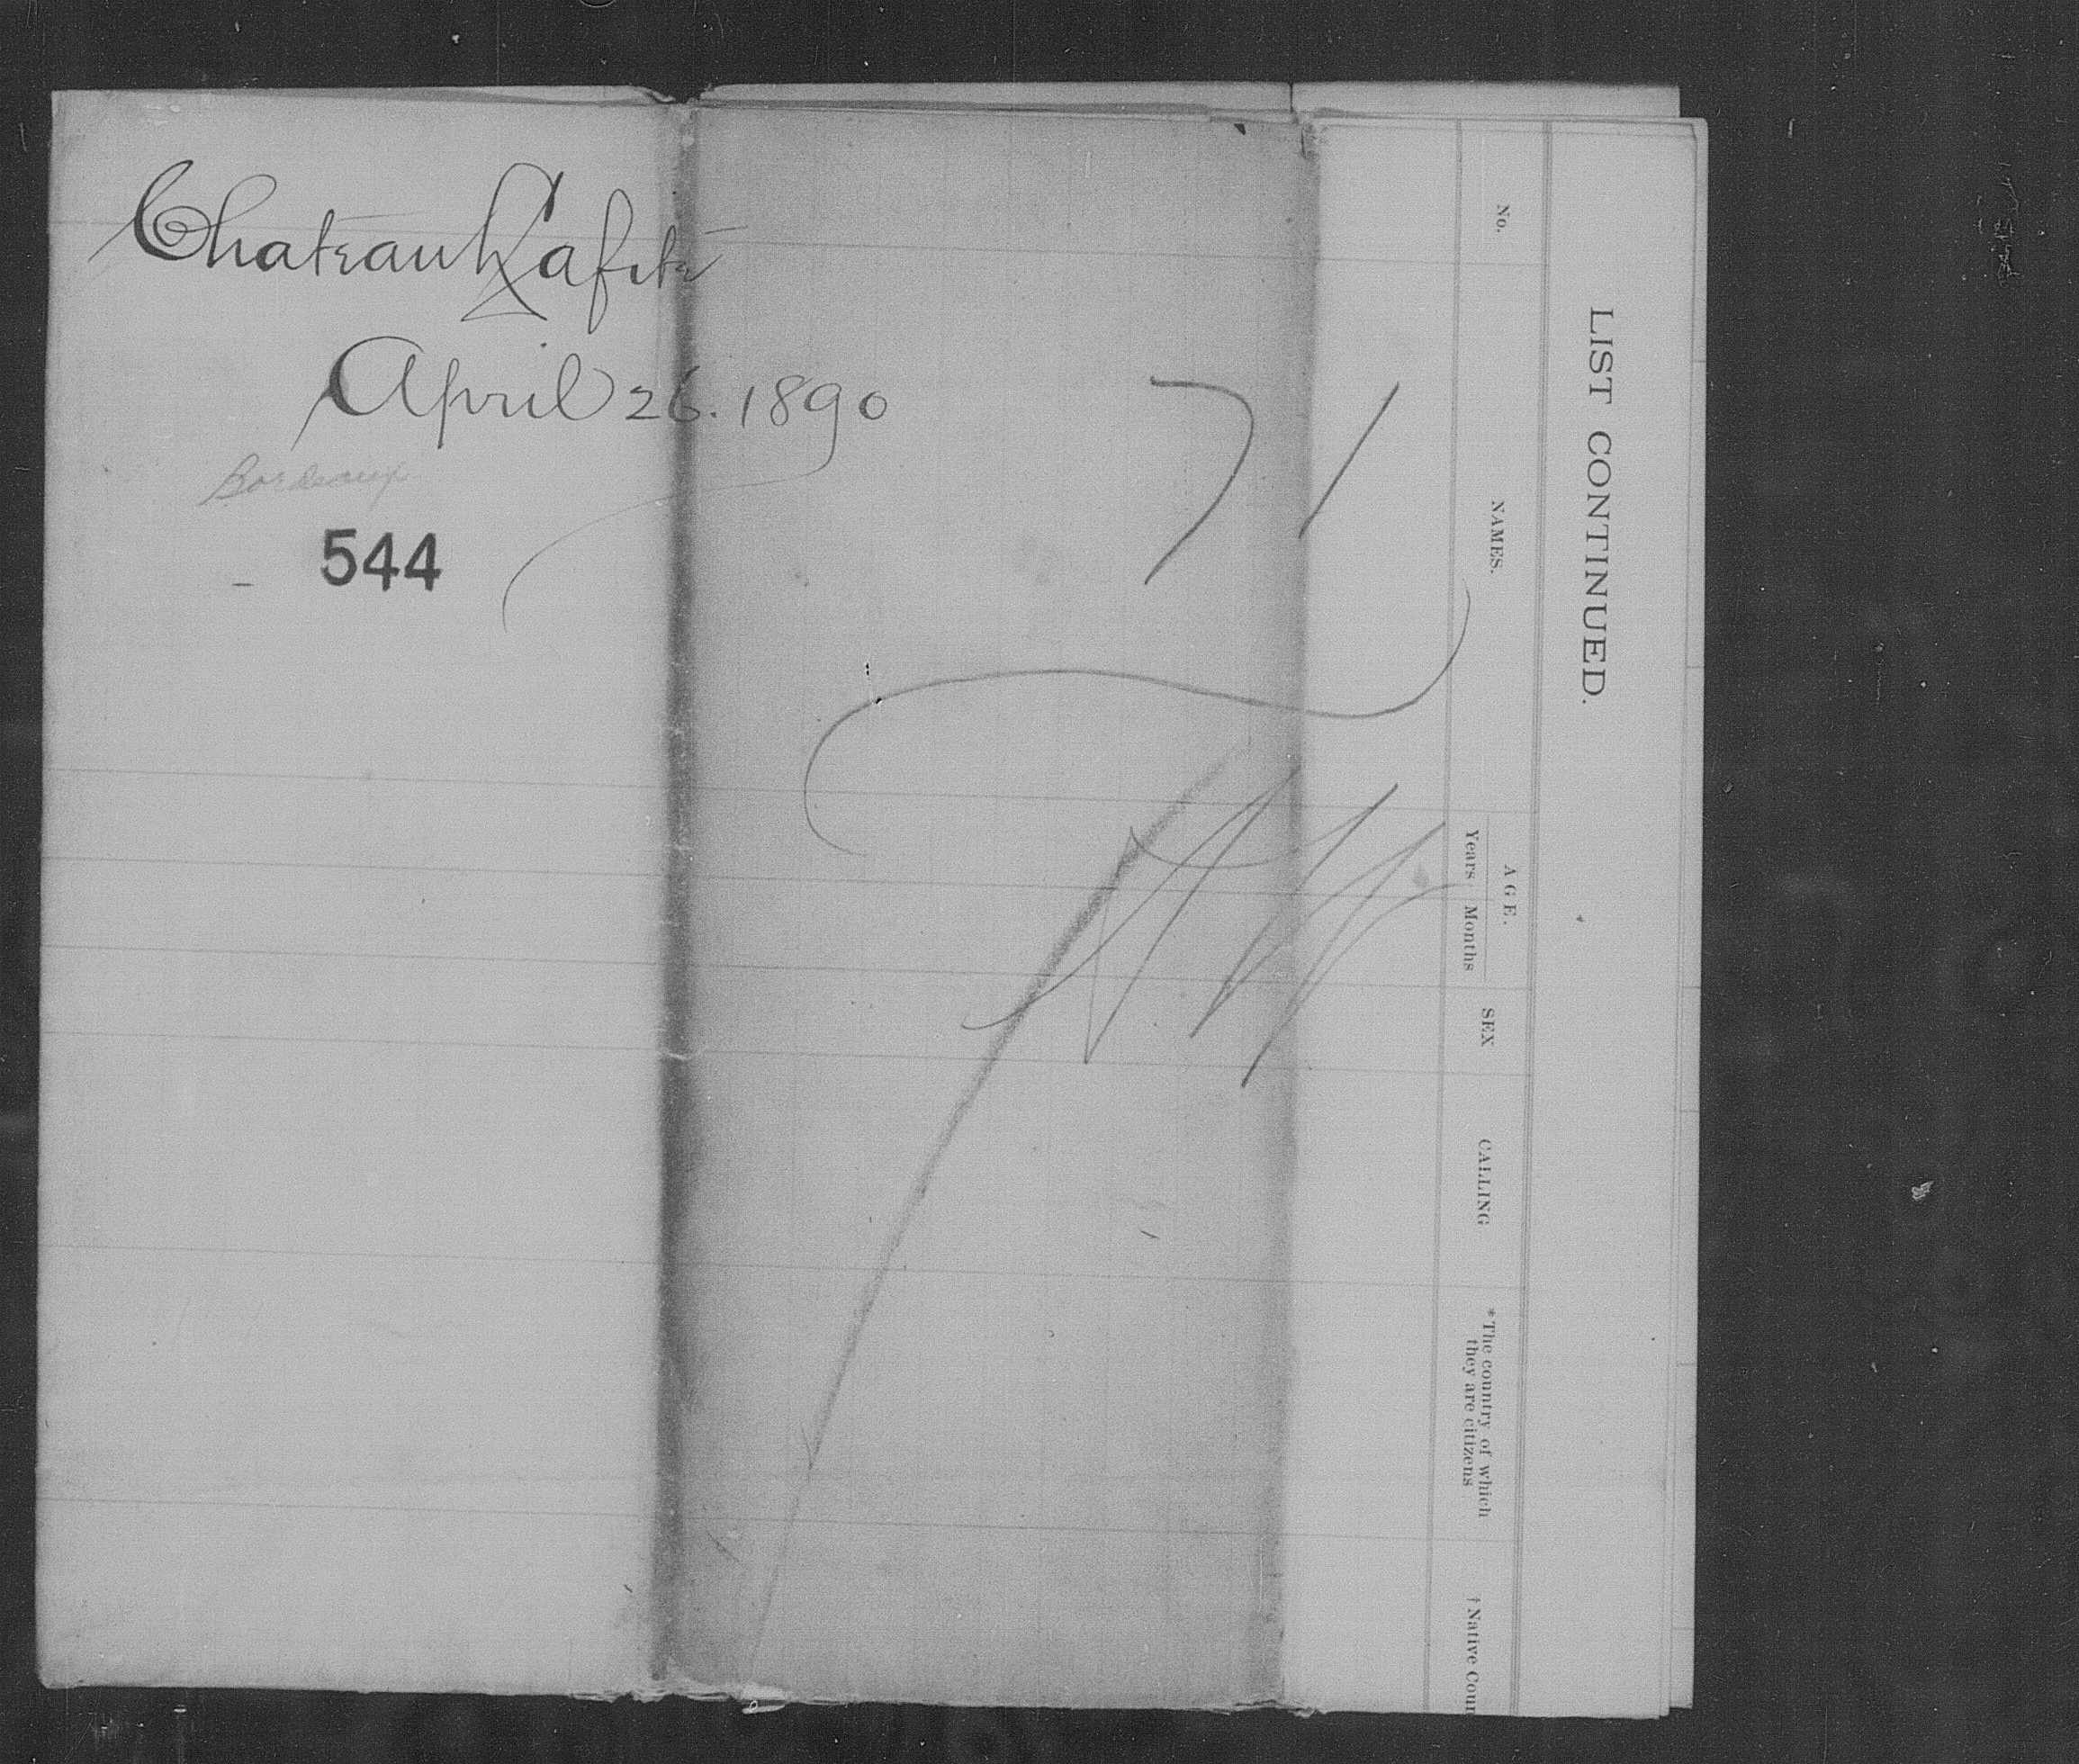 Chateau Lafite
April 26. 1890
Bordeaux
544
71
LIST CONTINUED.
No.
NAMES.
AGE.
Years
Months
SEX
CALLING
* The country of which
they are citizens
† Native Coun